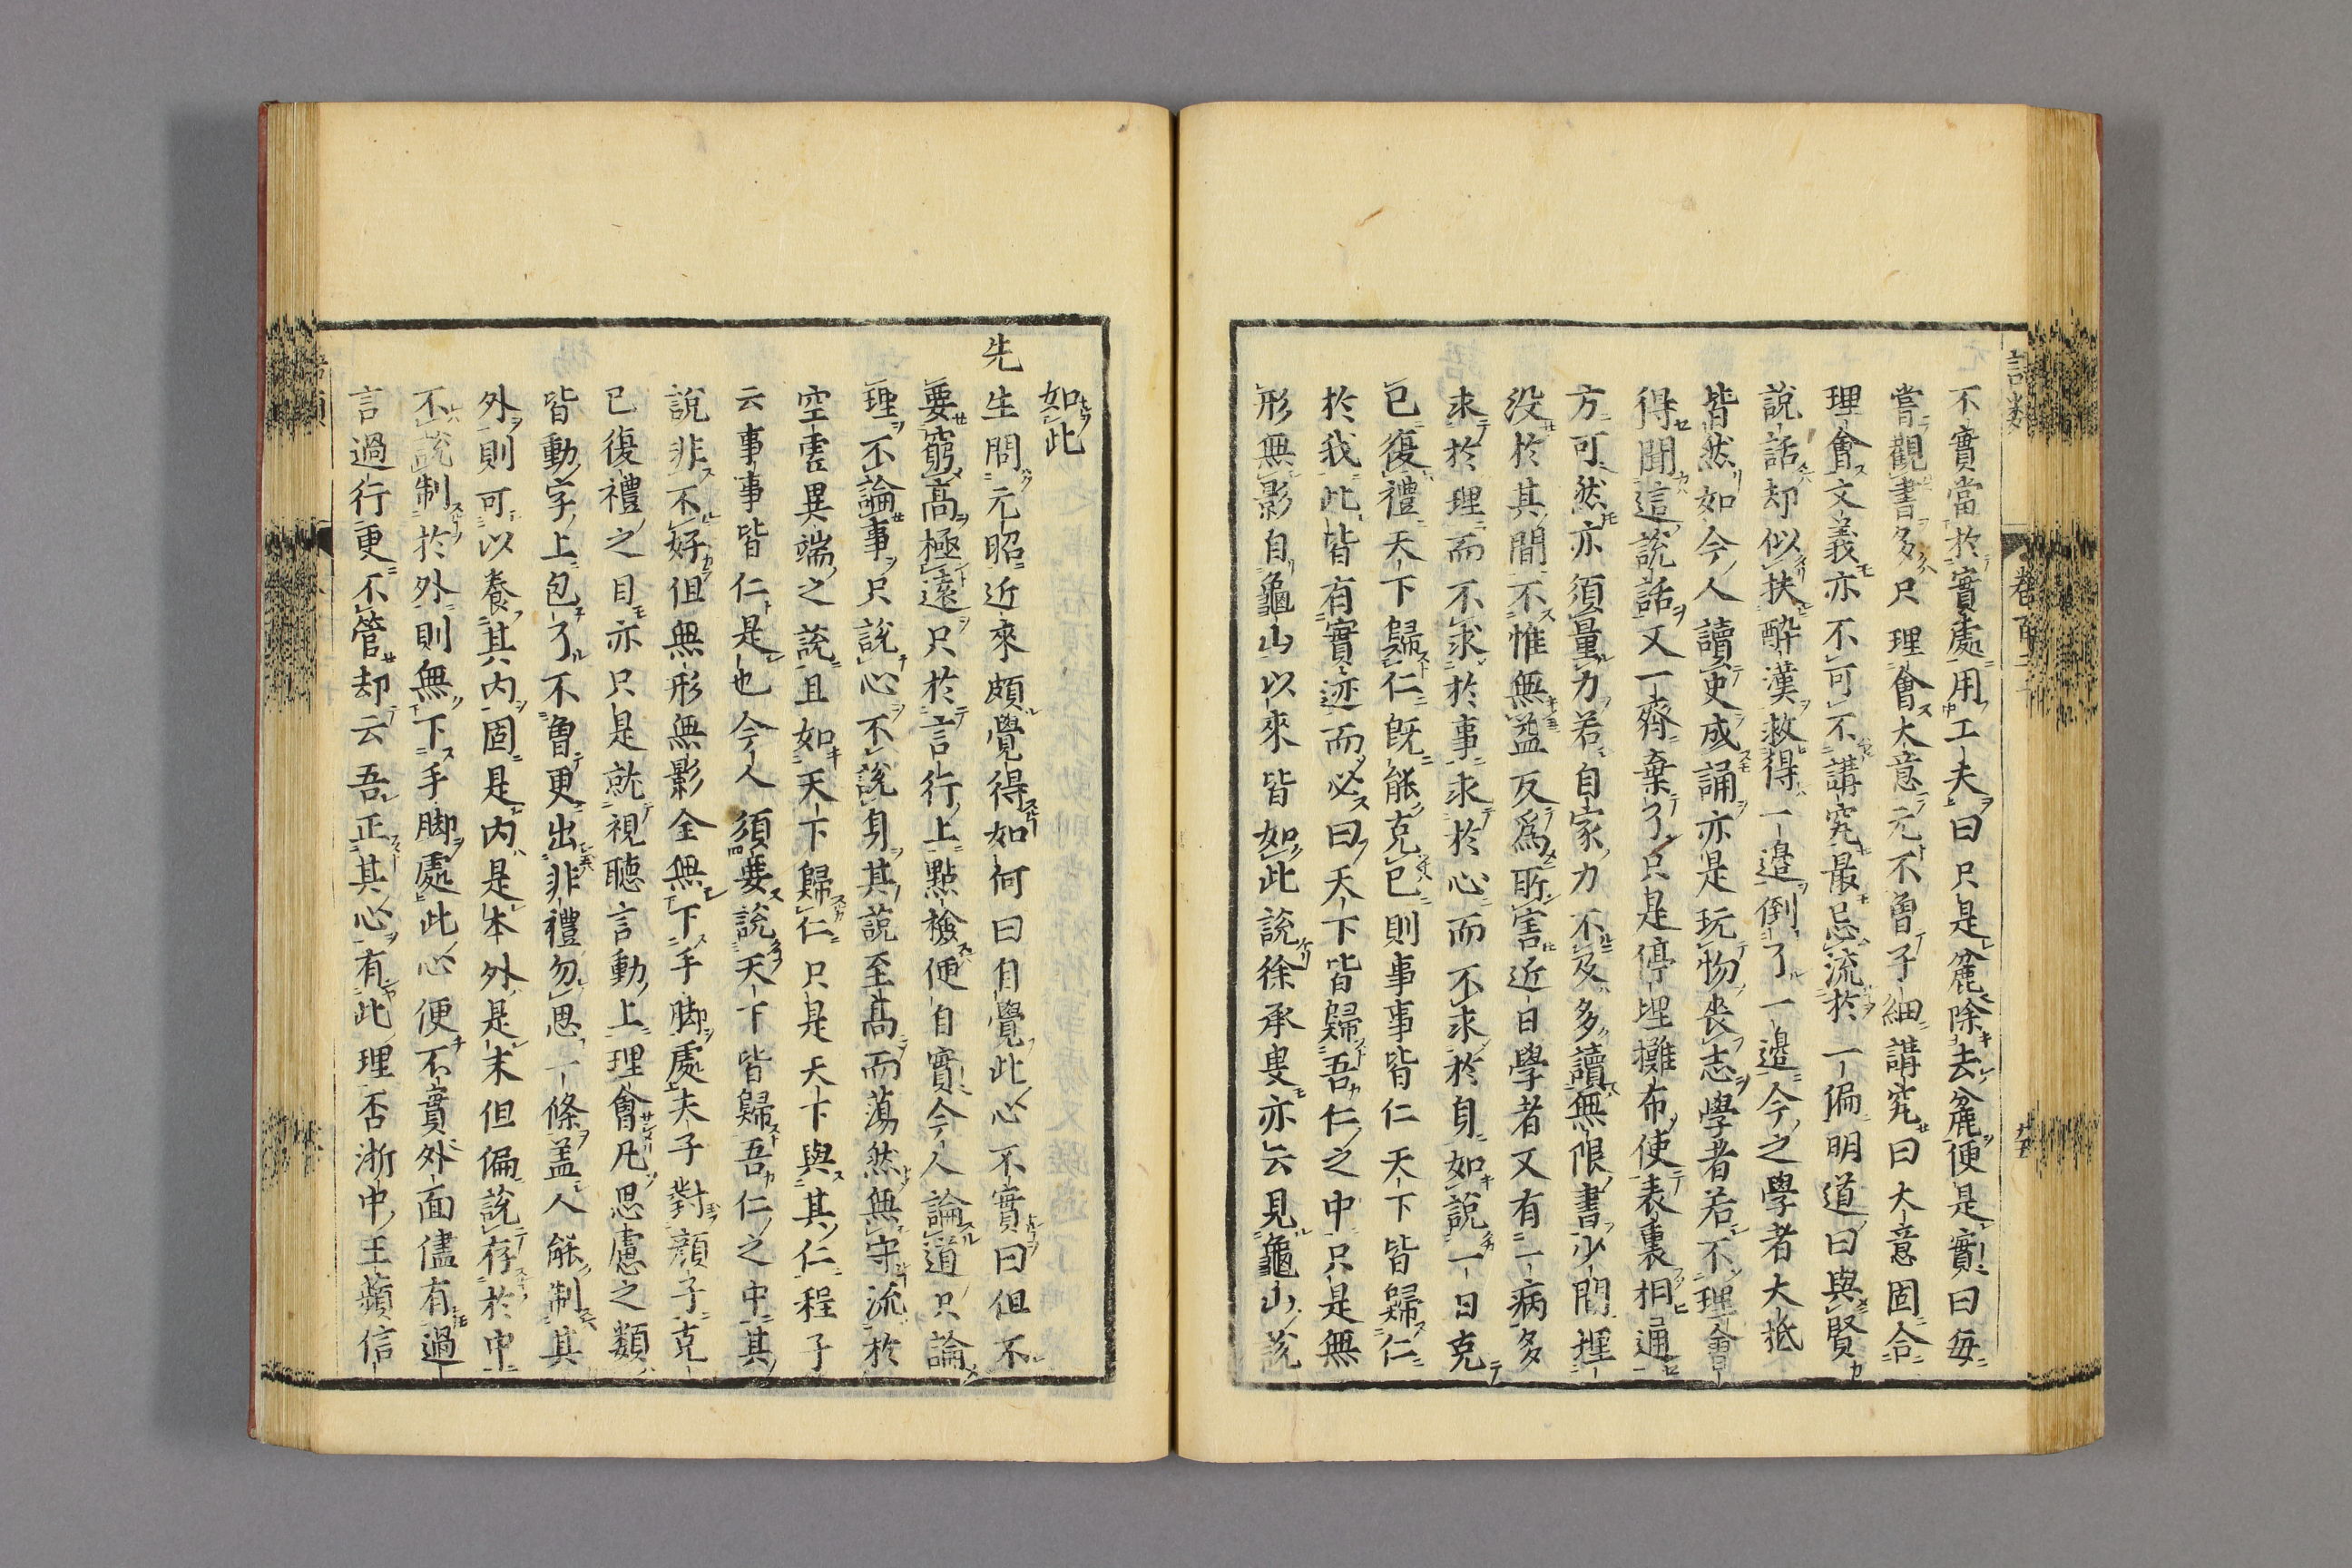 不實當於實處用工夫曰只是麄除去麄便是實曰每
嘗觀書多只理會大意元不曾子細講究曰大意固合
理會文義亦不可不講究最忌流於一偏明道曰與賢
說話却似扶醉漢救得一邊倒了一邊今之學者大抵
皆然如今人讀史成誦亦是玩物喪志學者若不理會
得聞這說話又一齊棄了只是停埋攤布使表裏相通
方可然亦須量力若自家力不及多讀無限書少間埋
没於其間不惟無益反爲所害近日學者又有一病多
求於理而不求於事求於心而不求於身如說一日克
己復禮天下歸仁既能克己則事事皆仁天下皆歸仁
於我此皆有實迹而必曰天下皆歸吾仁之中只是無
形無影自龜山以來皆如此說徐承叟亦云見龜山說
如此
先生問元昭近來頗覺得如何曰自覺此心不實曰但不
要窮高極遠只於言行上點檢便自實今人論道只論
理不論事只說心不說身其說至高而蕩然無守流於
空虛異端之說且如天下歸仁只是天下與其仁程子
云事事皆仁是也今人須要說天下皆歸吾仁之中其
說非不好但無形無影全無下手脚處夫子對顏子克
己復禮之目亦只是就視聽言動上理會凡思慮之類
皆動字上包了不曾更出非禮勿思一條盖人能制其
外則可以養其内固是内是本外是末但偏說存於中
不說制於外則無下手脚處此心便不實外面儘有過
言過行更不管却云吾正其心有此理否浙中王蘋信